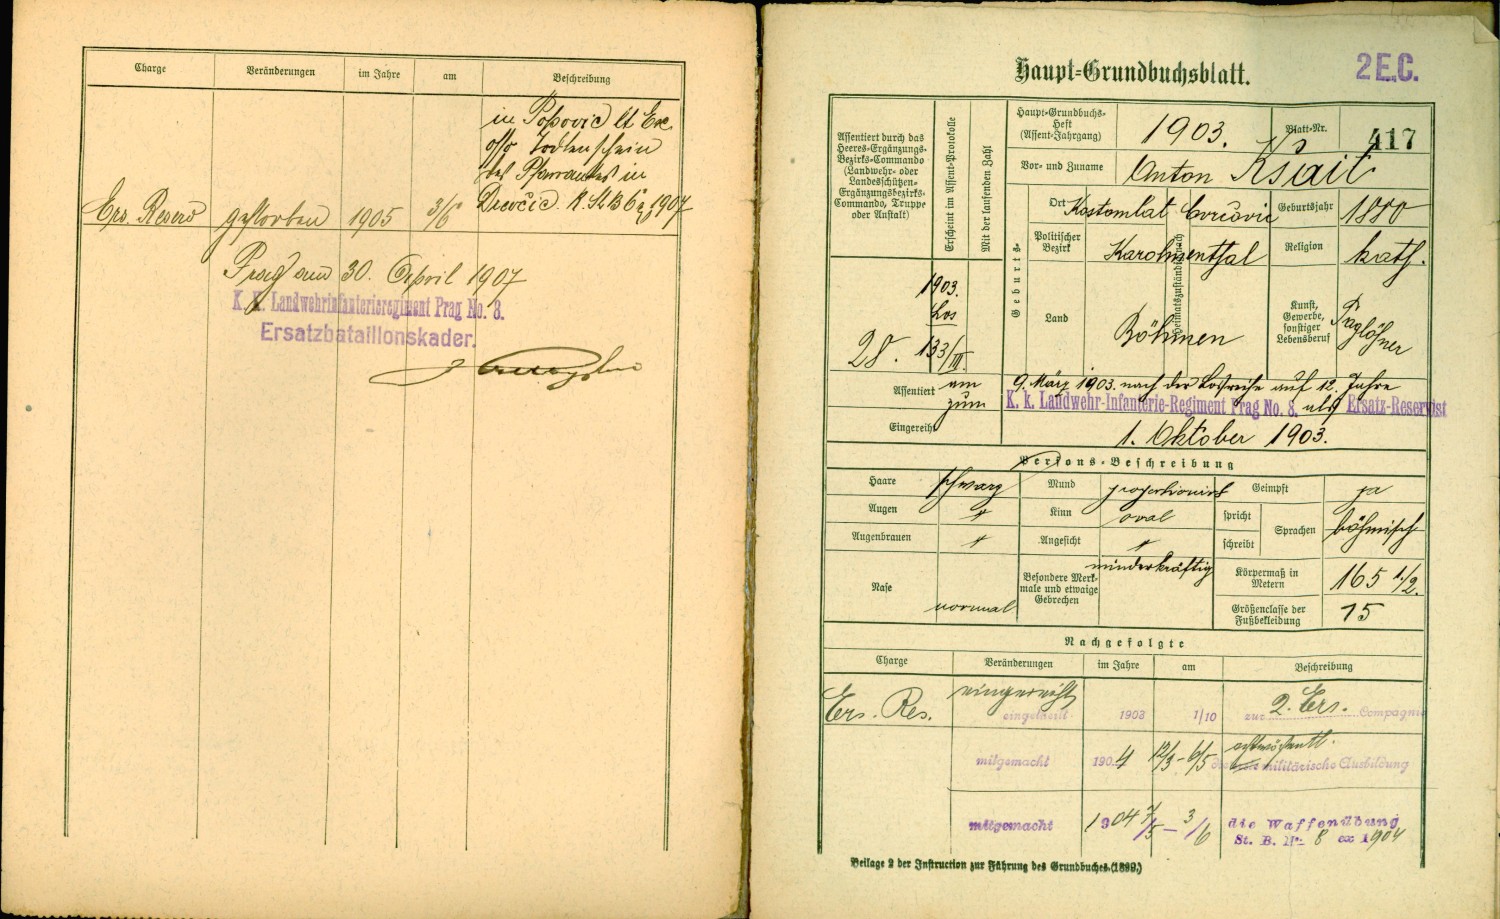 Charge Veränderungen im Jahre am Beschreibung
in Popovic lt Exc.
Todtenschein
des Pfarramtes in
Drevčic. K. St. B. 1907
Ers. Reserv gestorben 1905 3/6
Prag am 30. April 1907
K. K. Landwehrinfanterieregiment Prag No. 8.
Ersatzbataillonskader.
2 E.C.
Haupt=Grundbuchsblatt.
Assentiert durch das
Heeres=Ergänzungs-
Bezirks=Commando
(Landwehr= oder
Landesschützen-
Ergänzungsbezirks-
Commando, Truppe
oder Anstalt)
Erscheint im Assent=Protokolle
Mit der laufenden Zahl
Haupt=Grundbuchs-
Heft
(Assent=Jahrgang)
1903.
Blatt=Nr. 417
Vor= und Zuname Anton Ksait
Geburts-
Ort Kostomlat
Geburtsjahr 1880
Politischer
Bezirk
Karolinenthal
Heimatszuständig nach
Religion kath.
Land Böhmen
Kunst,
Gewerbe,
sonstiger
Lebensberuf
Taglöhner
1903.
Los
28. 133/III.
Assentiert am 9. März 1903. nach der Losreihe auf 12. Jahre
zum K. k. Landwehr-Infanterie-Regiment Prag No. 8. als Ersatz-Reservist
Eingereiht 1. Oktober 1903.
Persons=Beschreibung
Haare schwarz Mund proportionirt Geimpft ja
Augen " Kinn oval spricht Sprachen böhmisch
Augenbrauen " Angesicht " schreibt
Nase normal
Besondere Merk-
male und etwaige
Gebrechen
minderkräftig
Körpermaß in
Metern
165 1/2.
Größenclasse der
Fußbekleidung
15
Nachgefolgte
Charge Veränderungen im Jahre am Beschreibung
Ers. Res. eingereiht
eingetheilt 1903 1/10 zur 2. Ers. Compagnie
mitgemacht 1904 12/3 - 6/5 achtwöchentl. militärische Ausbildung
mitgemacht 1904 7/5 - 3/6 die Waffenübung
St. B. Nr. 8 ex 1904
Beilage 2 der Instruction zur Führung des Grundbuches. (1899.)